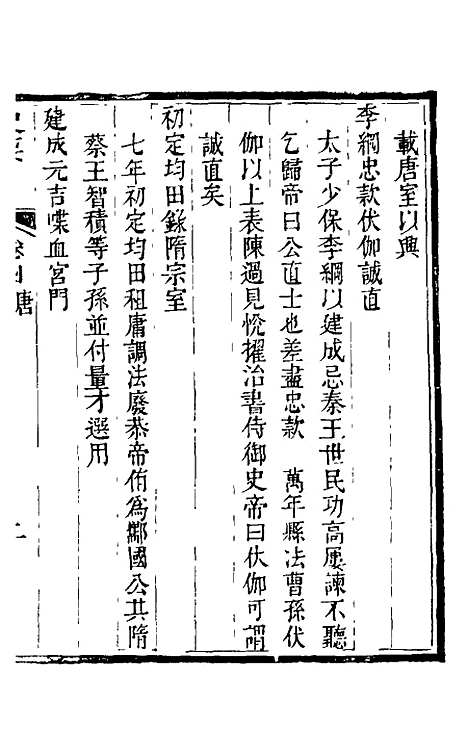 載唐室以興
李綱忠款伏伽誠直
太子少保李綱以建成忌秦王世民功高屢諫不聽
乞歸帝曰公直士也差盡忠款　萬年縣法曹孫伏
伽以上表陳過見悅擢治書侍御史帝曰伏伽可謂
誠直矣
初定均田錄隋宗室
七年初定均田租庸調法廢恭帝侑為酅國公其隋
蔡王智積等子孫並付量才選用
建成元吉喋血宮門
唐